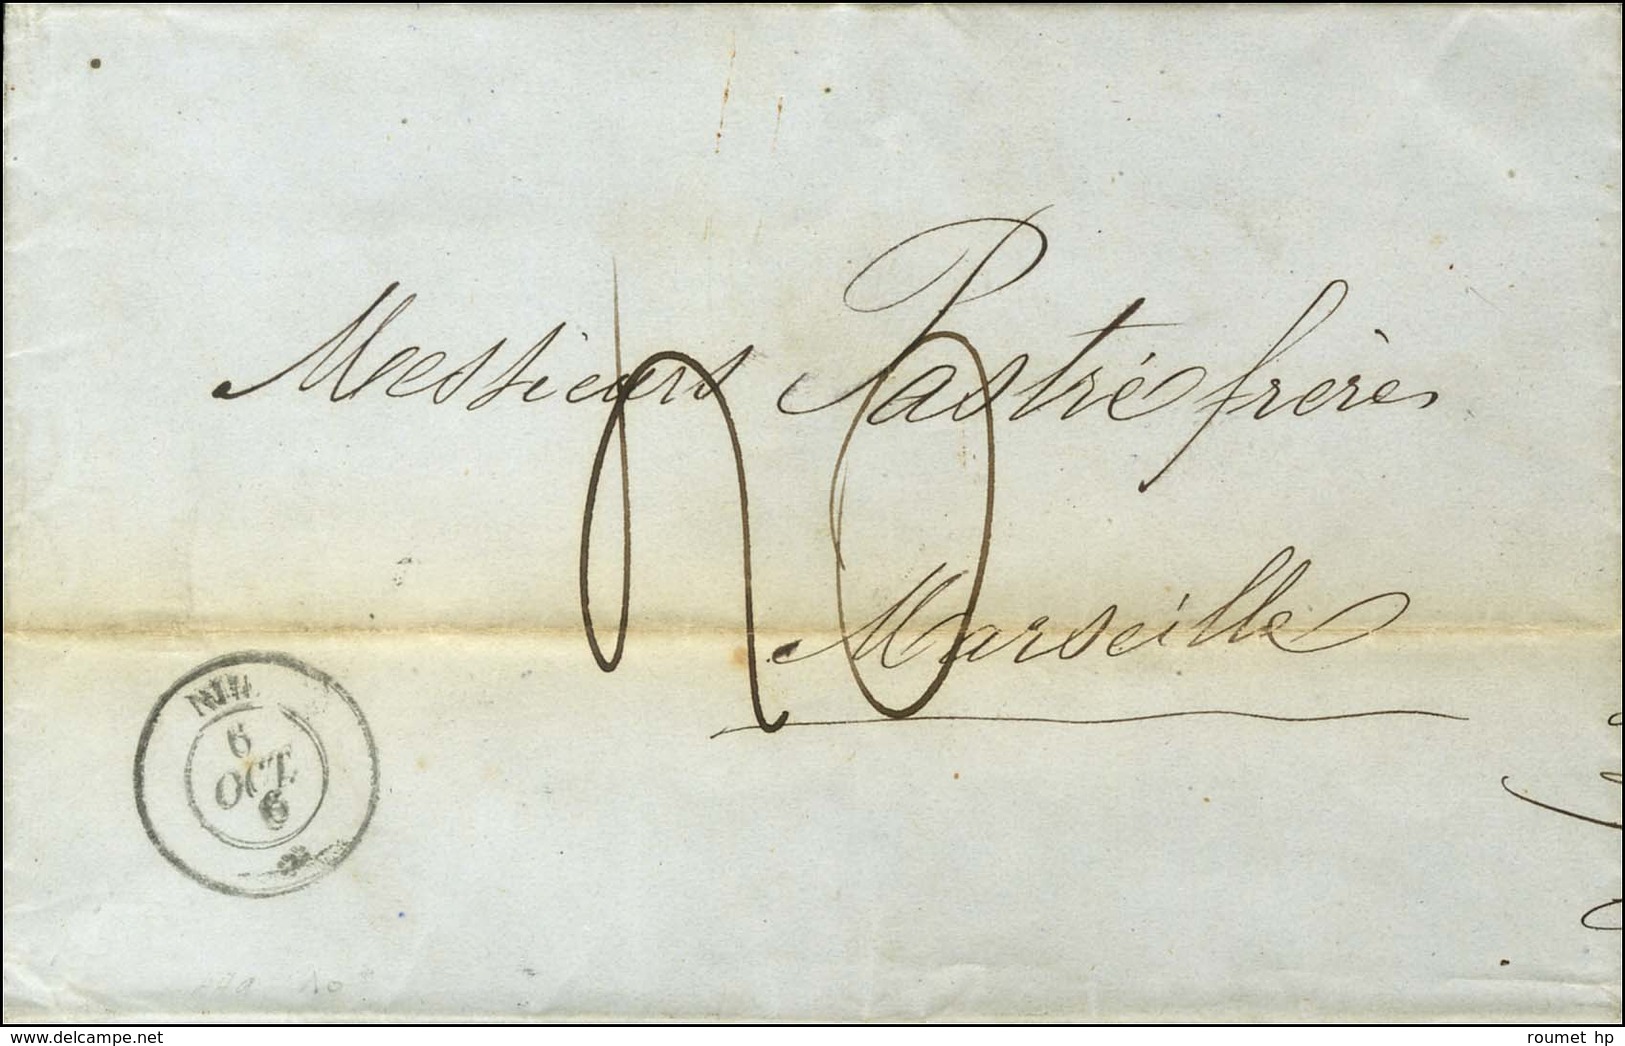 Messieurs Pastré frères
20
Marseille
6
OCT.
6
delcampe.net
roumet hp